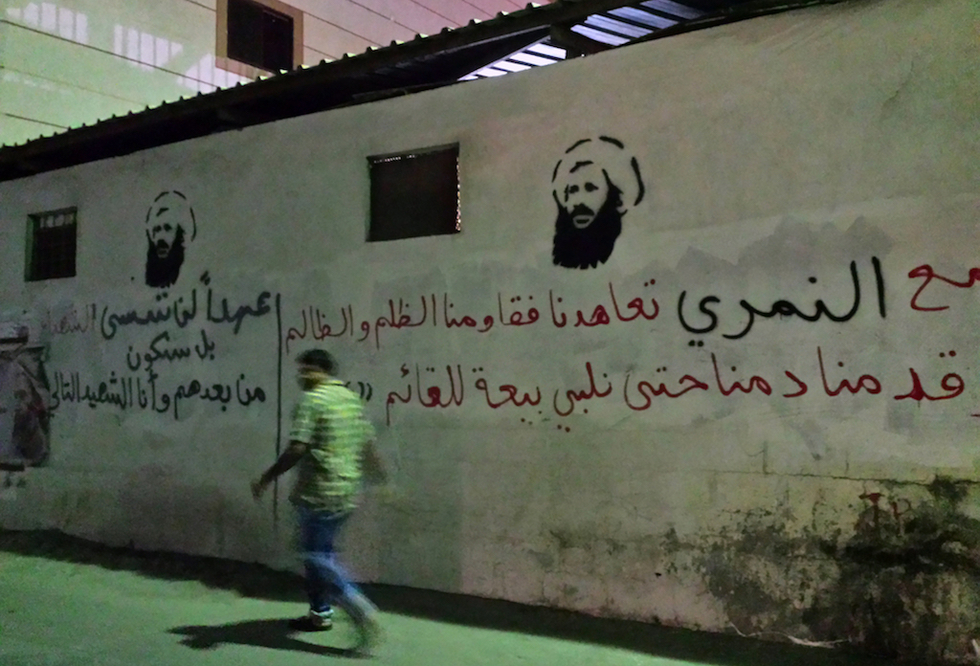 مع النمري تعاهدنا فقاومنا الظلم والظالم
قدمنا دمنا حتى نلبي بيعة للقائم
عهداً لن ننسى الشهداء
بل سنكون
من بعدهم وأنا الشهيد التالي